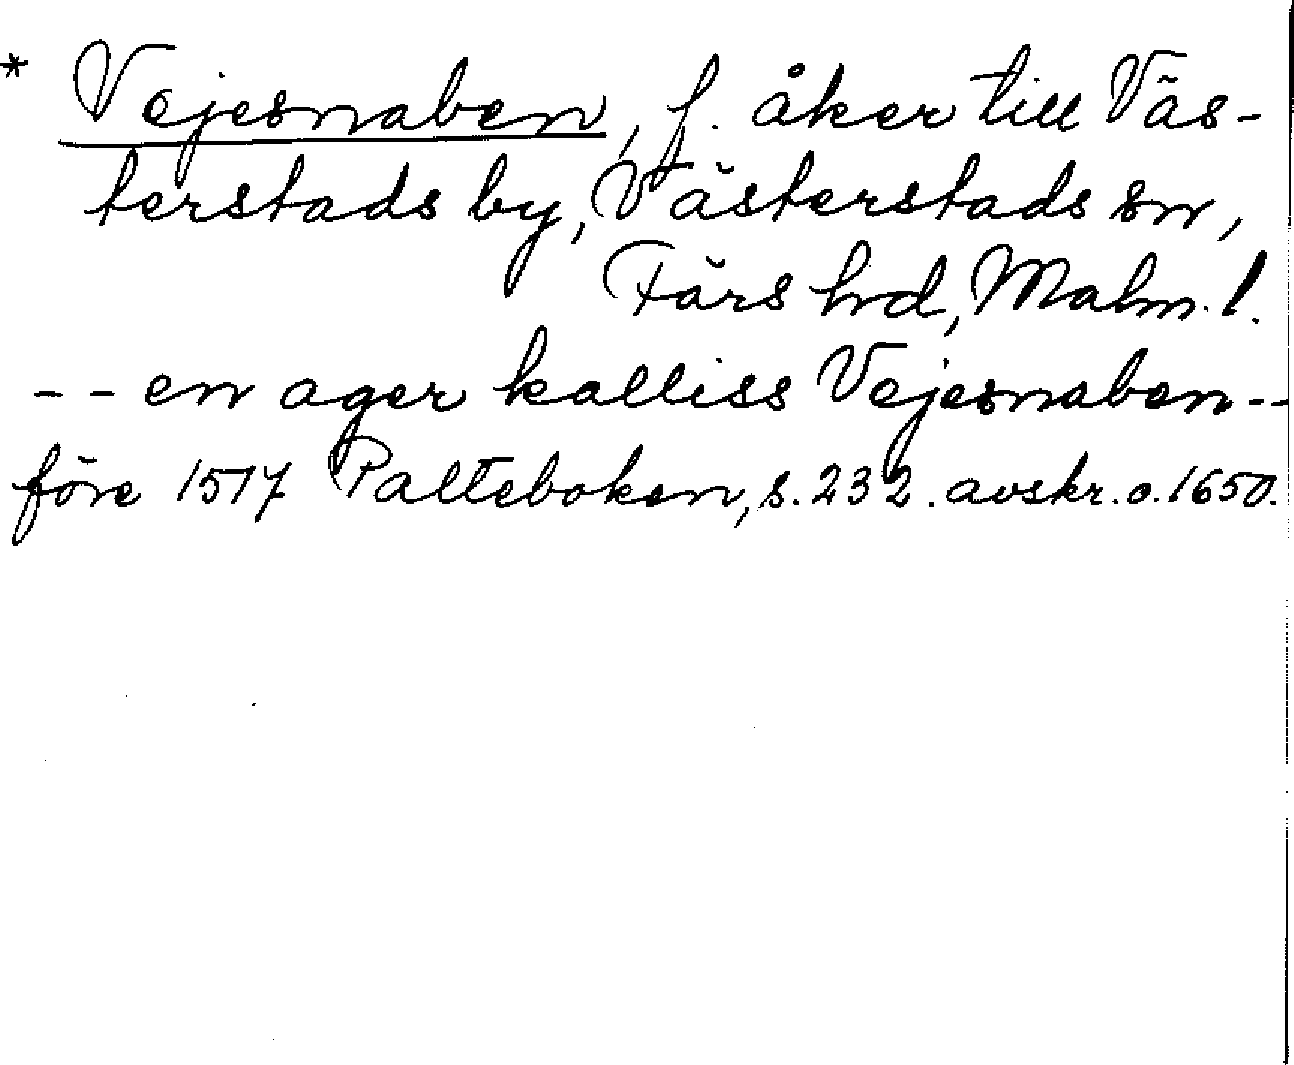 * Vejesnaben, f. åker till Väs-
terstads by, Västerstads sn,
Färs hrd, Malm. l.
-- en ager kalliss Vejesnaben --
före 1517 Palteboken, s. 232. avskr. o. 1650.